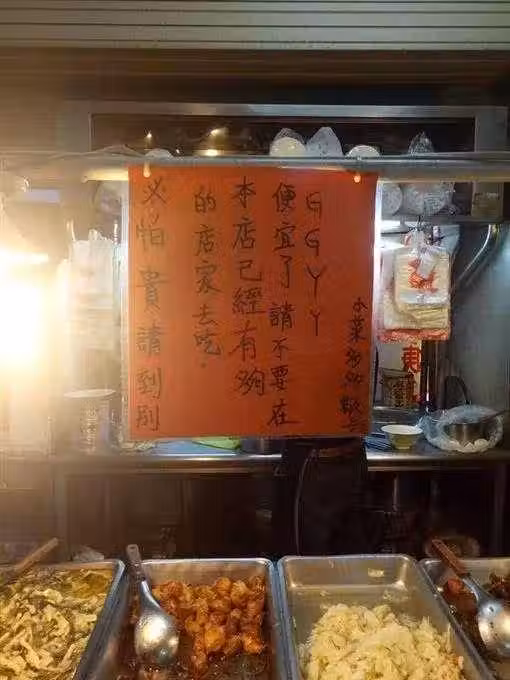 必怕貴請到別
的店家去吃.
本店已經有夠
便宜了請不要在
GGYY
小菜